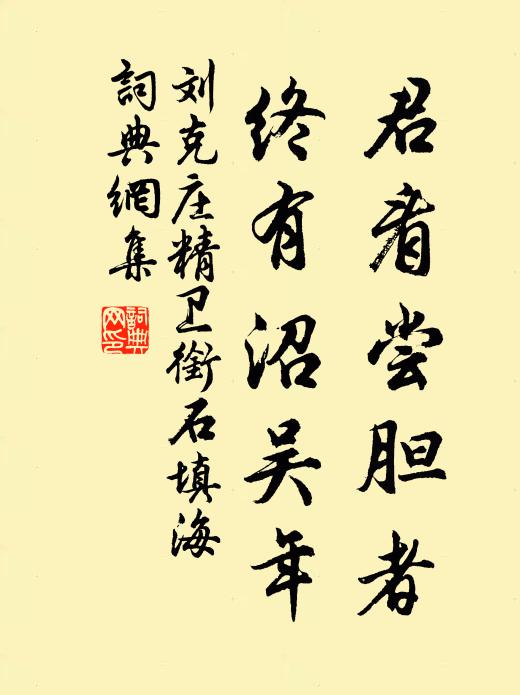 君看尝胆者
终有沼吴年
刘克庄精卫衔石填海
詞典網集
詞典
网印